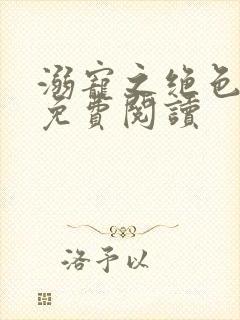 溺寵之絕色
免費閱讀
洛予以